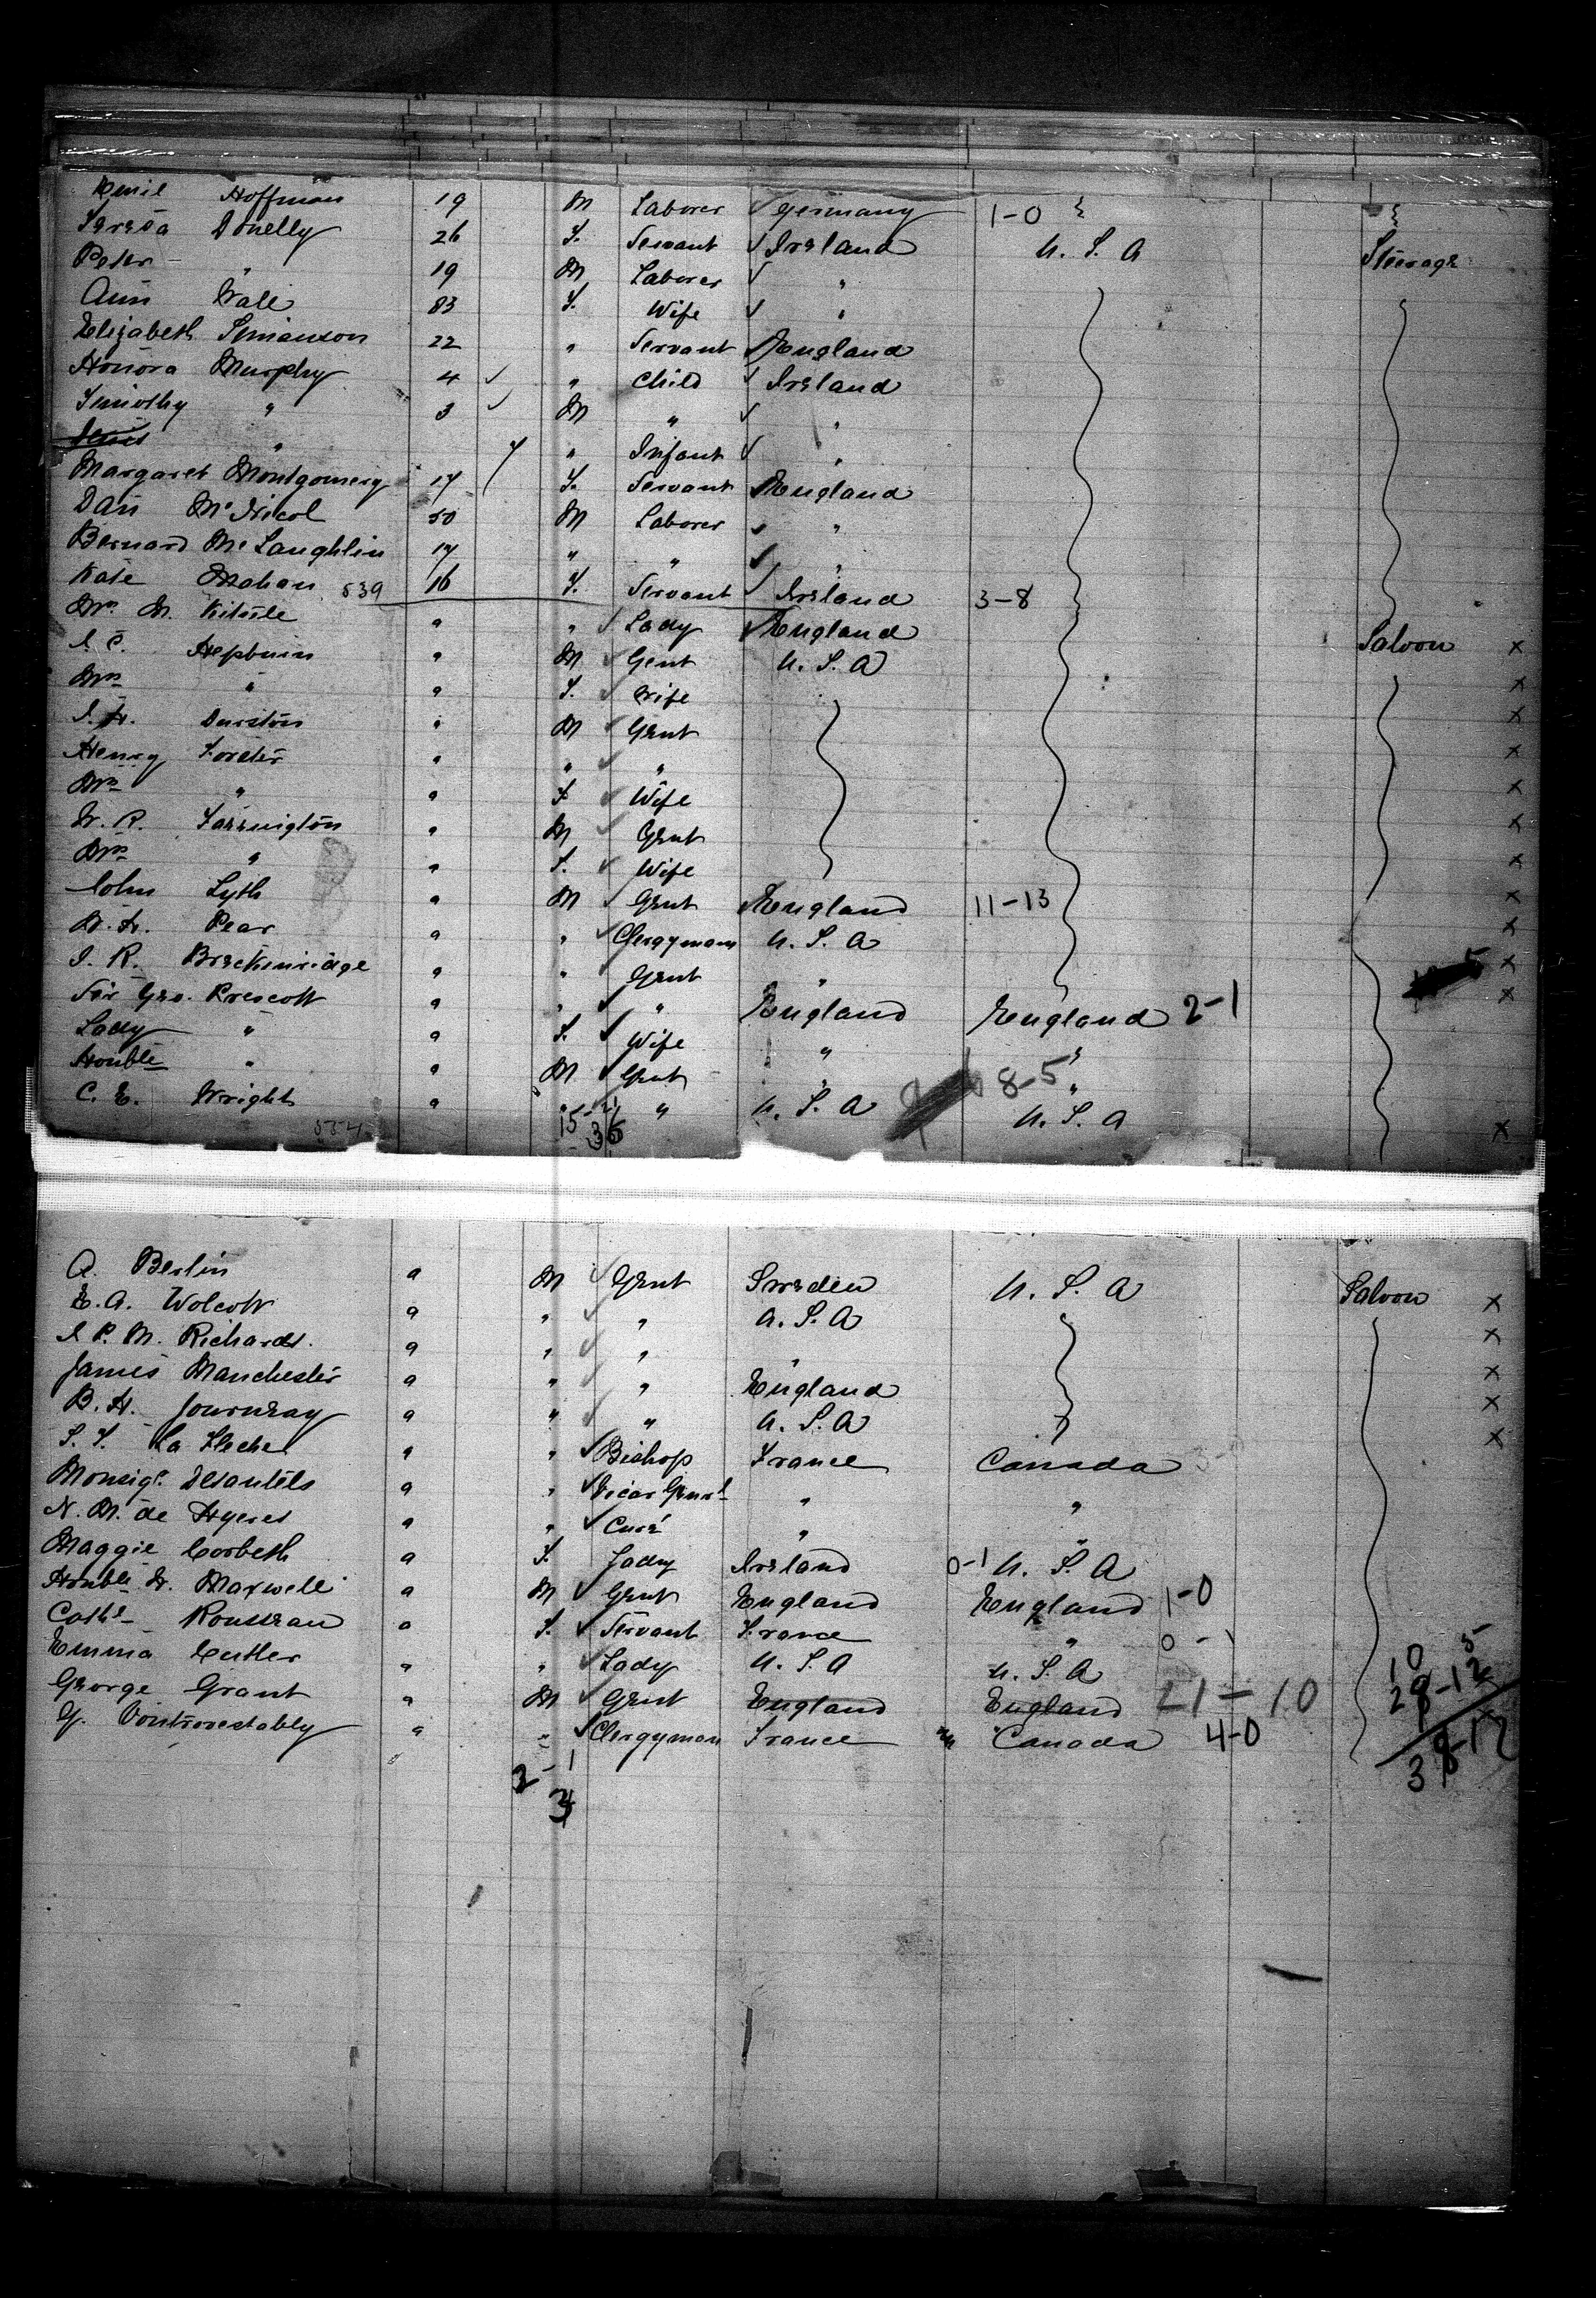 Emil Hoffman 19 M Laborer ✓ Germany 1-0
Teresa Donelly 26 F. Servant ✓ Ireland U. S. A Steerage
Peter " 19 M Laborer ✓ "
Ann Wall 83 F. Wife ✓ "
Elizabeth 22 " Servant England
Honora Murphy 4 ✓ " Child ✓ Ireland
Timothy " 3 ✓ M " ✓ "
" " Infant ✓ "
Margaret Montgomery 17 F. Servant England
Dan McNicol 50 M Laborer ✓ "
Bernard McLaughlin 17 " " ✓ "
Kate Mahan 539 16 F. Servant ✓ Ireland 3-8
Mrs. M. a " ✓ Lady England Saloon x
Hepburn a M ✓ Gent U. S. A x
Mrs " a F. ✓ Wife x
Durston a M ✓ Gent x
Henry Forster a " ✓ " x
Mrs " a F ✓ Wife x
W. R. Farrington a M ✓ Gent x
Mrs " a F. ✓ Wife x
John Lyth a M ✓ Gent England 11-13 x
Pear a " ✓ Clergyman U. S. A x
Breckinridge a " Gent " x
Sir Geo. Prescott a " ✓ " England England 2-1
Lady " a F. ✓ Wife " "
Honble " a M ✓ Gent " 8-5 "
C. E. Wright a " " U. S. A U. S. A x
554 15-21 36
A. Berlin a M ✓ Gent Sweden U. S. A Saloon x
E. A. Wolcott a " ✓ " U. S. A x
P. M. Richards. a " ✓ " " x
James Manchester a " ✓ " England x
B. H. Journeay a " ✓ " U. S. A x
La Fleche a " ✓ Bishop France Canada
Monsigr. Desautels a " ✓ Vicar Genrl " "
N. M. de Hyeres a " ✓ Curé " "
Maggie Corbeth a F. Lady Ireland 0-1 U. S. A
Honble W. Maxwell a M ✓ Gent England England 1-0
Cathe Rousseau a F. ✓ Servant France " 0-1
Emma Cutler a " ✓ Lady U. S. A U. S. A
George Grant a M ✓ Gent England England 21-10
G. a " ✓ Clergyman France Canada 4-0